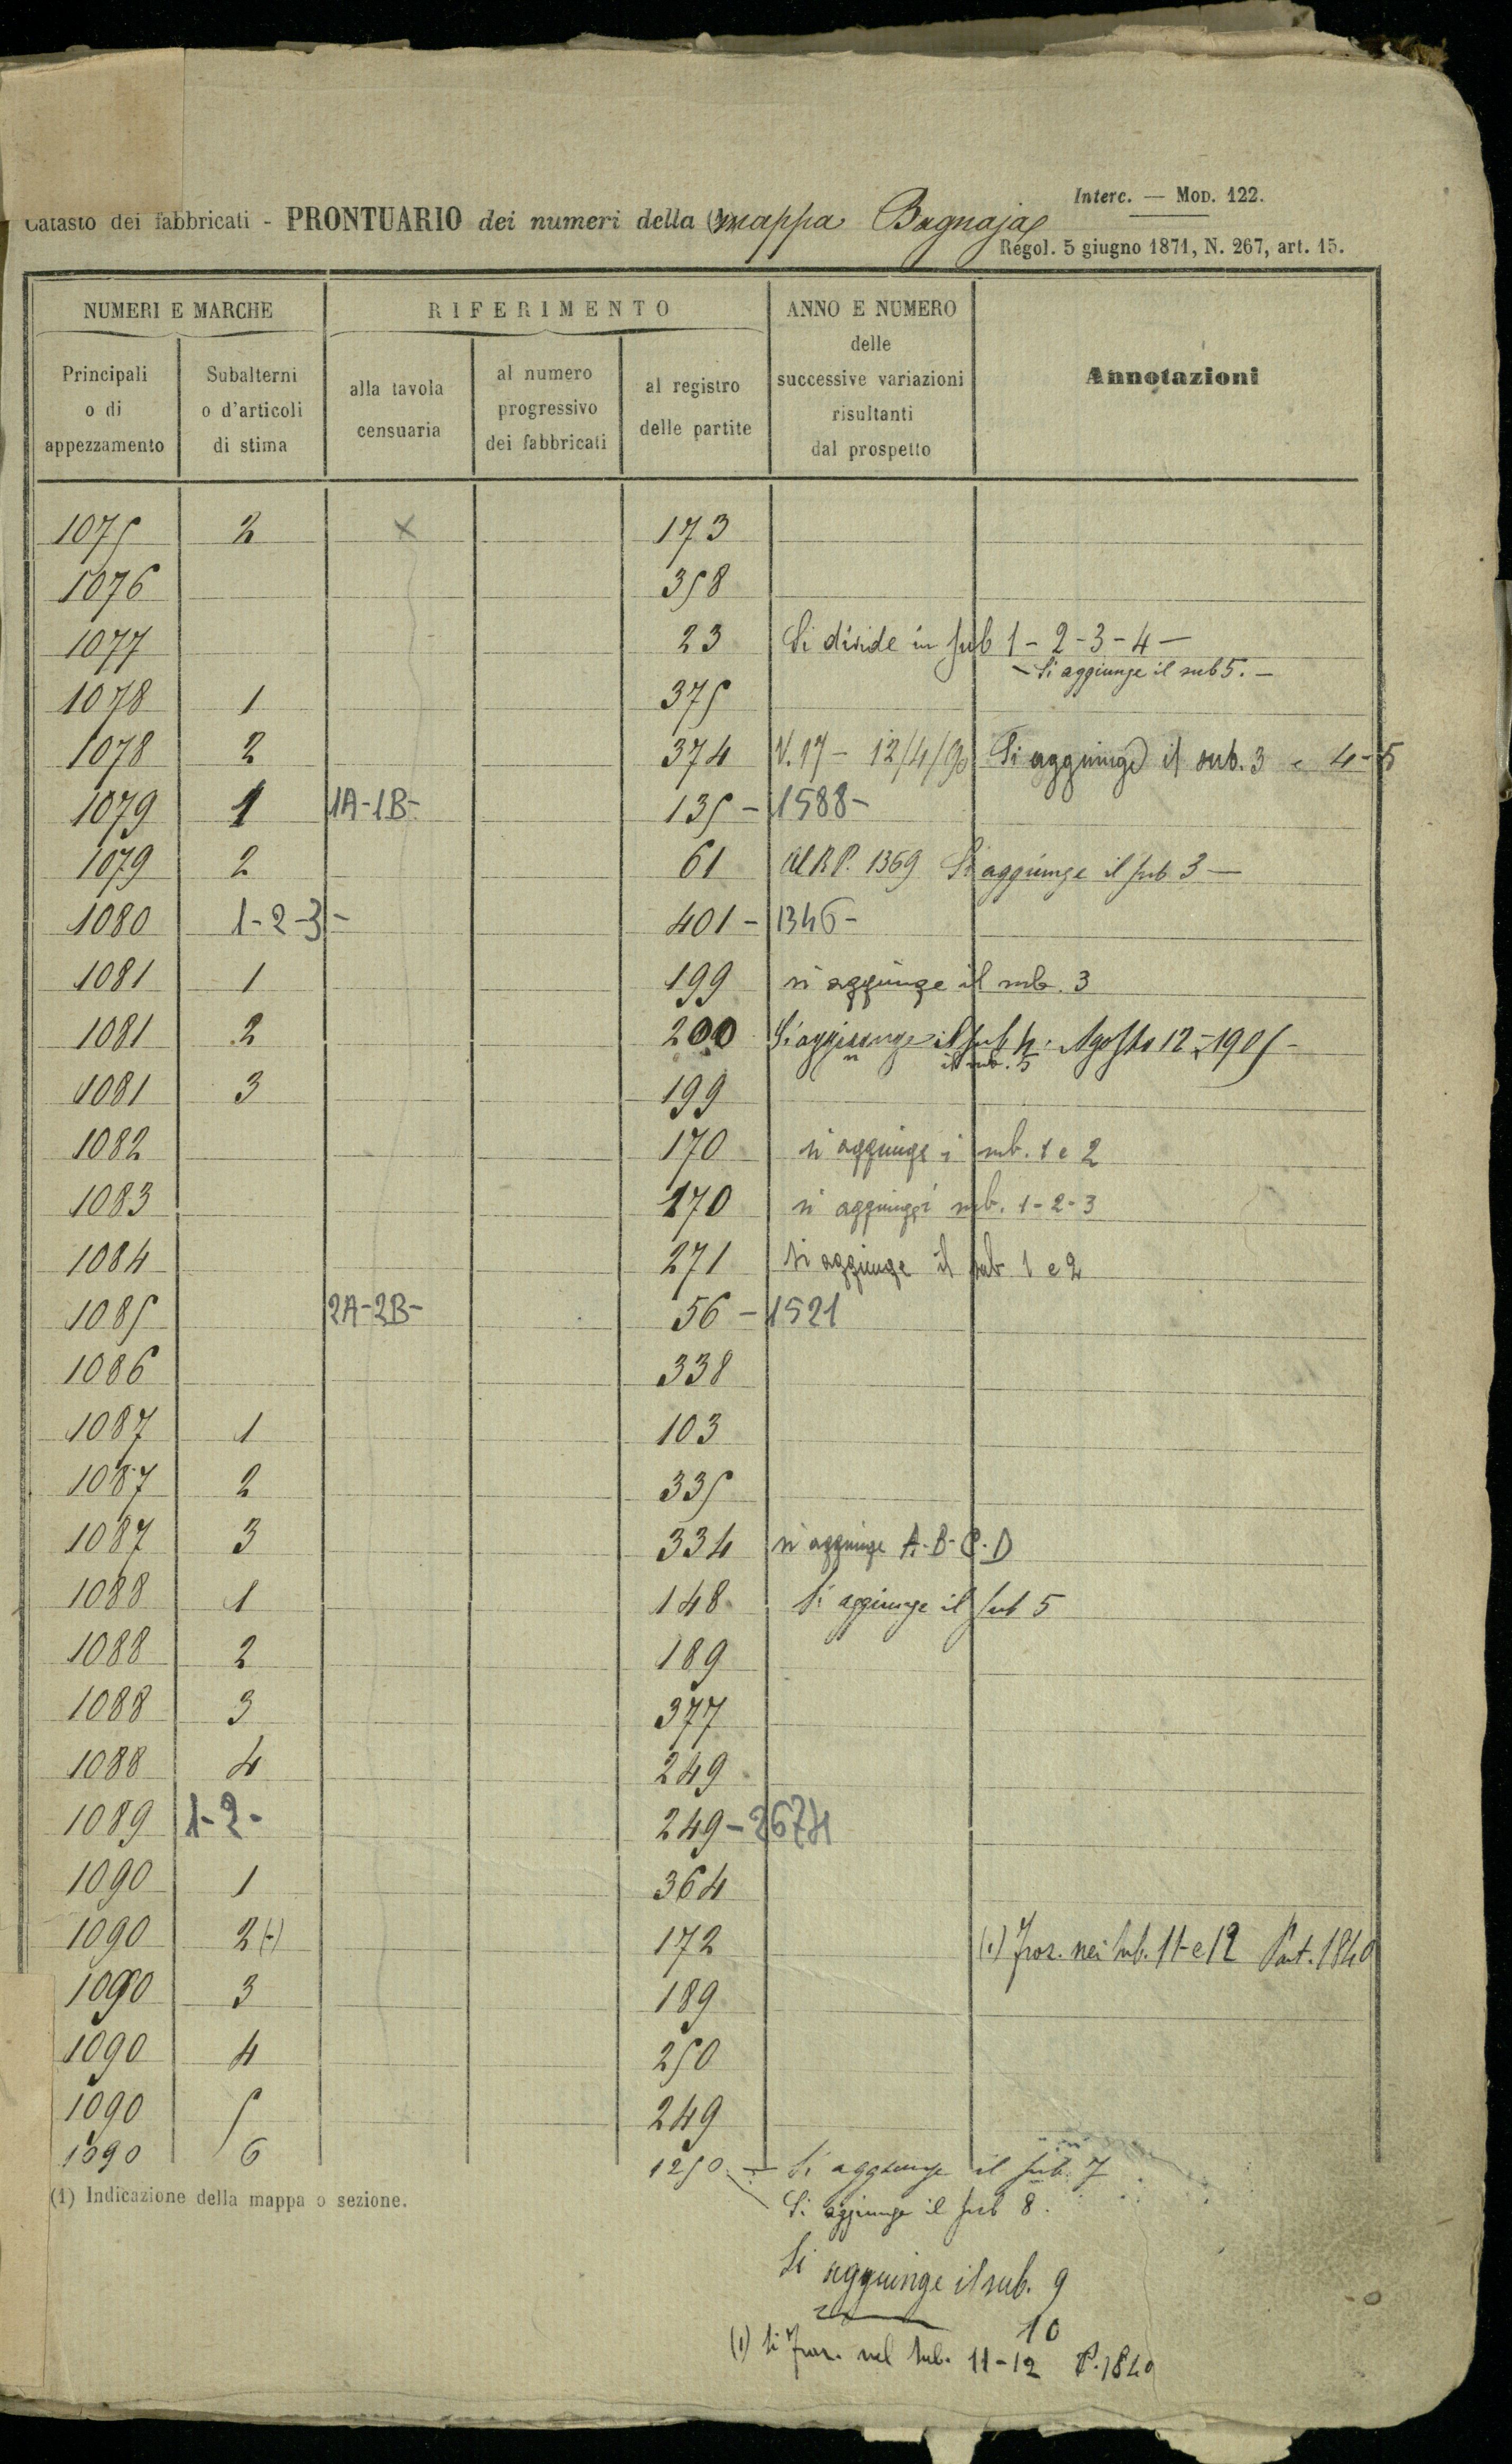 Interc. — Mod. 122.
Catasto dei fabbricati - PRONTUARIO dei numeri della (1) mappa Bagnaja
Regol. 5 giugno 1871, N. 267, art. 15.
NUMERI E MARCHE RIFERIMENTO ANNO E NUMERO delle successive variazioni risultanti dal prospetto Annotazioni
Principali o di appezzamento Subalterni o d'articoli di stima alla tavola censuaria al numero progressivo dei fabbricati al registro delle partite
1075 2 x 173
1076 358
1077 23 Si divide in sub 1 - 2 - 3 - 4 —
— Si aggiunge il sub 5. —
1078 1 375
1078 2 374 V. 17 - 12/4/90 Si aggiunge il sub. 3 e 4-5
1079 1 1A-1B- 135 - 1588-
1079 2 61 Al R.P. 1369 Si aggiunge il sub 3 —
1080 1-2-3 - 401 - 1346 -
1081 1 199 si aggiunge il sub. 3
1081 2 200 Si aggiunge il sub 4. Agosto 12 - 1905 -
" il sub. 5
1081 3 199
1082 170 si aggiunge i sub. 1 e 2
1083 170 si aggiungi sub. 1-2-3
1084 271 si aggiunge il sub 1 e 2
1085 2A-2B- 56 - 1521
1086 338
1087 1 103
1087 2 335
1087 3 334 si aggiunge A-B-C-D
1088 1 148 Si aggiunge il sub 5
1088 2 189
1088 3 377
1088 4 249
1089 1-2- 249 - 2674
1090 1 364
1090 2 (1) 172 (1) Fraz. nei sub. 11 e 12 Part. 1840
1090 3 189
1090 4 250
1090 5 249
1090 6 1250 — Si aggiunge il sub. 7
(1) Indicazione della mappa o sezione.
Si aggiunge il sub 8.
Si aggiunge il sub. 9
10
(1) Si fraz. nel sub. 11-12 P. 1840